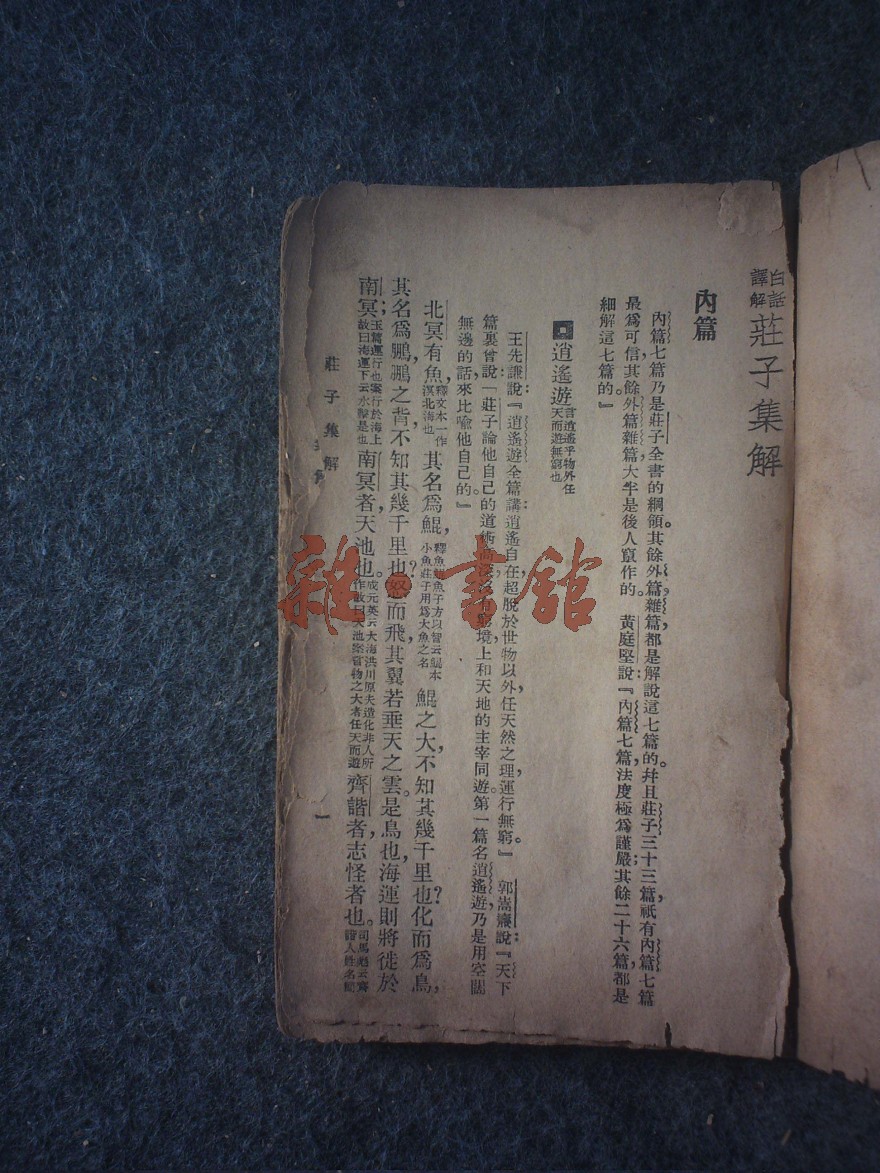 白話譯解 莊子集解
內篇
內篇七篇乃是莊子全書的綱領。其餘外篇,雜篇,都是解說這七篇的。幷且莊子三十三篇,祇有內篇七篇
最爲可信其餘外篇雜篇大半是後人竄作的。黃庭堅說:『內篇七篇,法度極爲謹嚴;其餘二十六篇都是
細解這七篇的。』
逍遙遊 言逍遙乎物外任天而遊無窮也
王先謙說:『逍遙遊全篇講逍遙自在,超脫於世物以外,任天然之理,運行無窮。』郭嵩燾說:『天下
篇裏曾說:「莊子論他自己的道術高深沒有窮境,上和天地的主宰同遊。第一篇名逍遙遊,乃是用空闊
無邊的話,來比喻他自己的。』
北冥有魚,釋文本一作溟北海也 其名爲鯤,釋魚鯤魚子方以智云鯤本小魚莊子用爲大魚之名 鯤之大,不知其幾千里也?化而爲鳥,
其名爲鵬,鵬之背,不知其幾千里也?怒而飛,其翼若垂天之雲。是鳥也,海運則將徙於
南冥;玉篇運行也案行於海上故曰海運下云水擊是也 南冥者,天池也。成元英云大海洪川原夫造化非人所作故曰天池案言物之大者任天而遊 齊諧者,志怪者也。司馬彪云齊諧人姓名簡
莊子集解
一
雜·書館